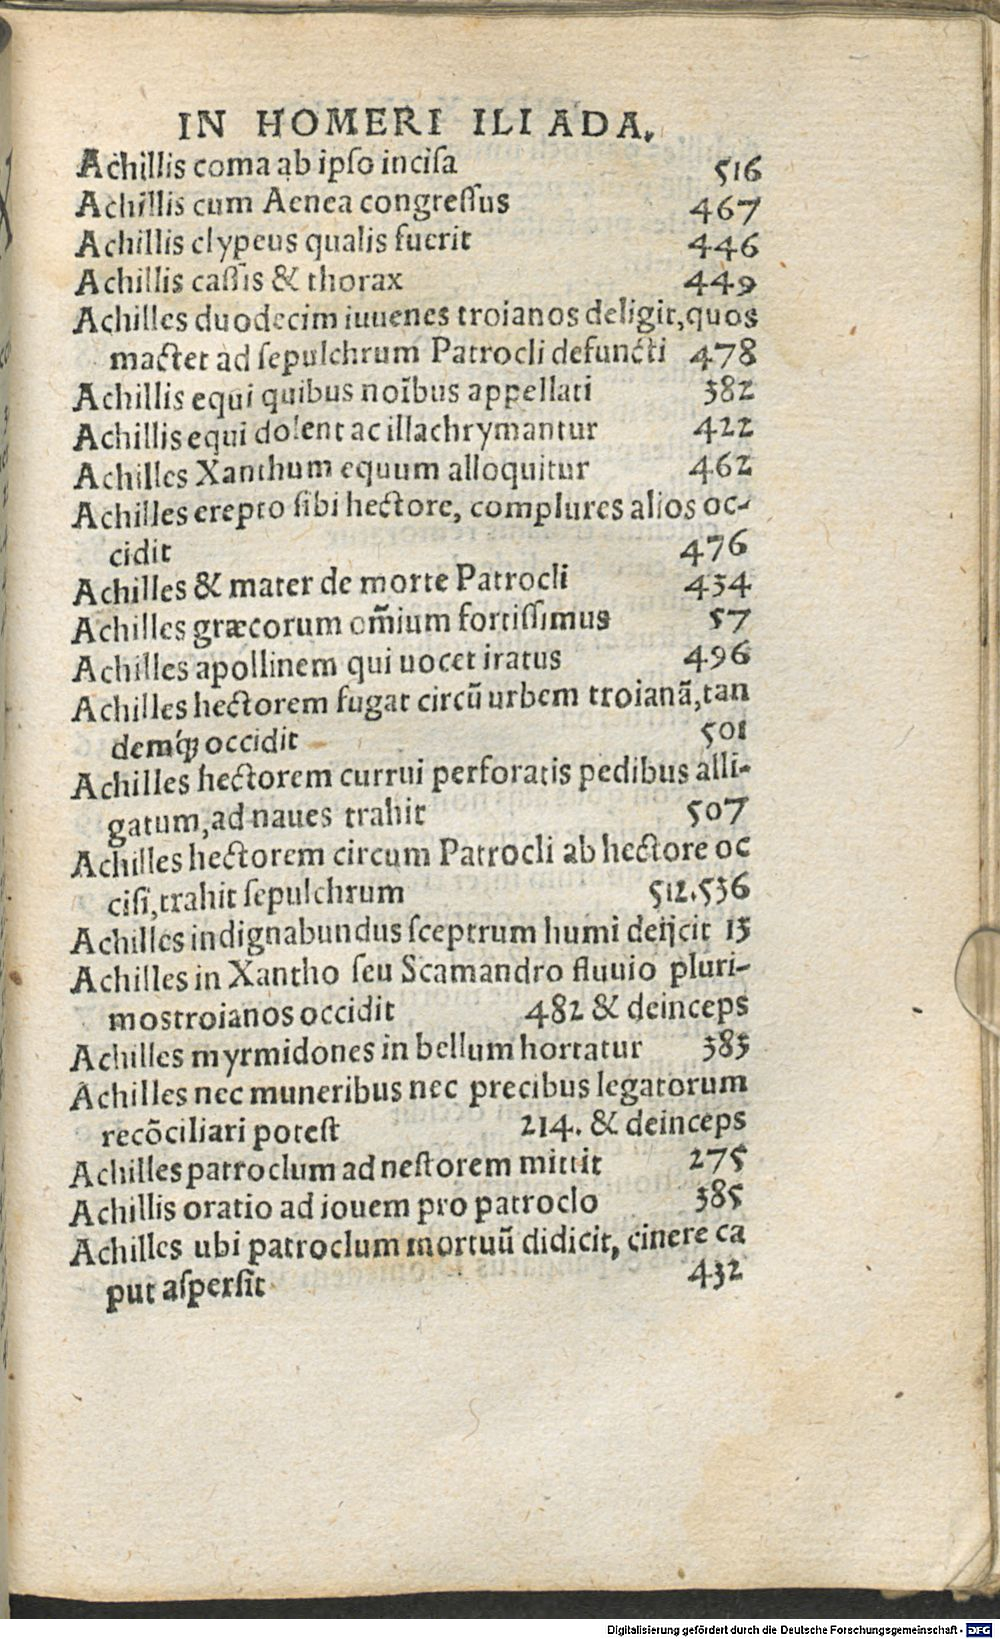 IN HOMERI ILIADA.
Achillis coma ab ipſo inciſa 516
Achillis cum Aenea congreſſus 467
Achillis clypeus qualis fuerit 446
Achillis caſſis & thorax 449
Achilles duodecim iuuenes troianos deligit, quos
mactet ad ſepulchrum Patrocli defuncti 478
Achillis equi quibus noĩbus appellati 382
Achillis equi dolent ac illachrymantur 422
Achilles Xanthum equum alloquitur 462
Achilles erepto ſibi hectore, complures alios oc-
cidit 476
Achilles & mater de morte Patrocli 434
Achilles græcorum om̃ium fortiſſimus 57
Achilles apollinem qui uocet iratus 496
Achilles hectorem fugat circũ urbem troianã, tan
demq́ꝫ occidit 501
Achilles hectorem currui perforatis pedibus alli-
gatum, ad naues trahit 507
Achilles hectorem circum Patrocli ab hectore oc
ciſi, trahit ſepulchrum 512.536
Achilles indignabundus ſceptrum humi deijcit 15
Achilles in Xantho ſeu Scamandro fluuio pluri-
mos troianos occidit 482 & deinceps
Achilles myrmidones in bellum hortatur 383
Achilles nec muneribus nec precibus legatorum
recõciliari poteſt 214. & deinceps
Achilles patroclum ad neſtorem mittit 275
Achillis oratio ad iouem pro patroclo 385
Achilles ubi patroclum mortuũ didicit, cinere ca
put aſperſit 432
Digitalisierung gefördert durch die Deutsche Forschungsgemeinschaft - DFG